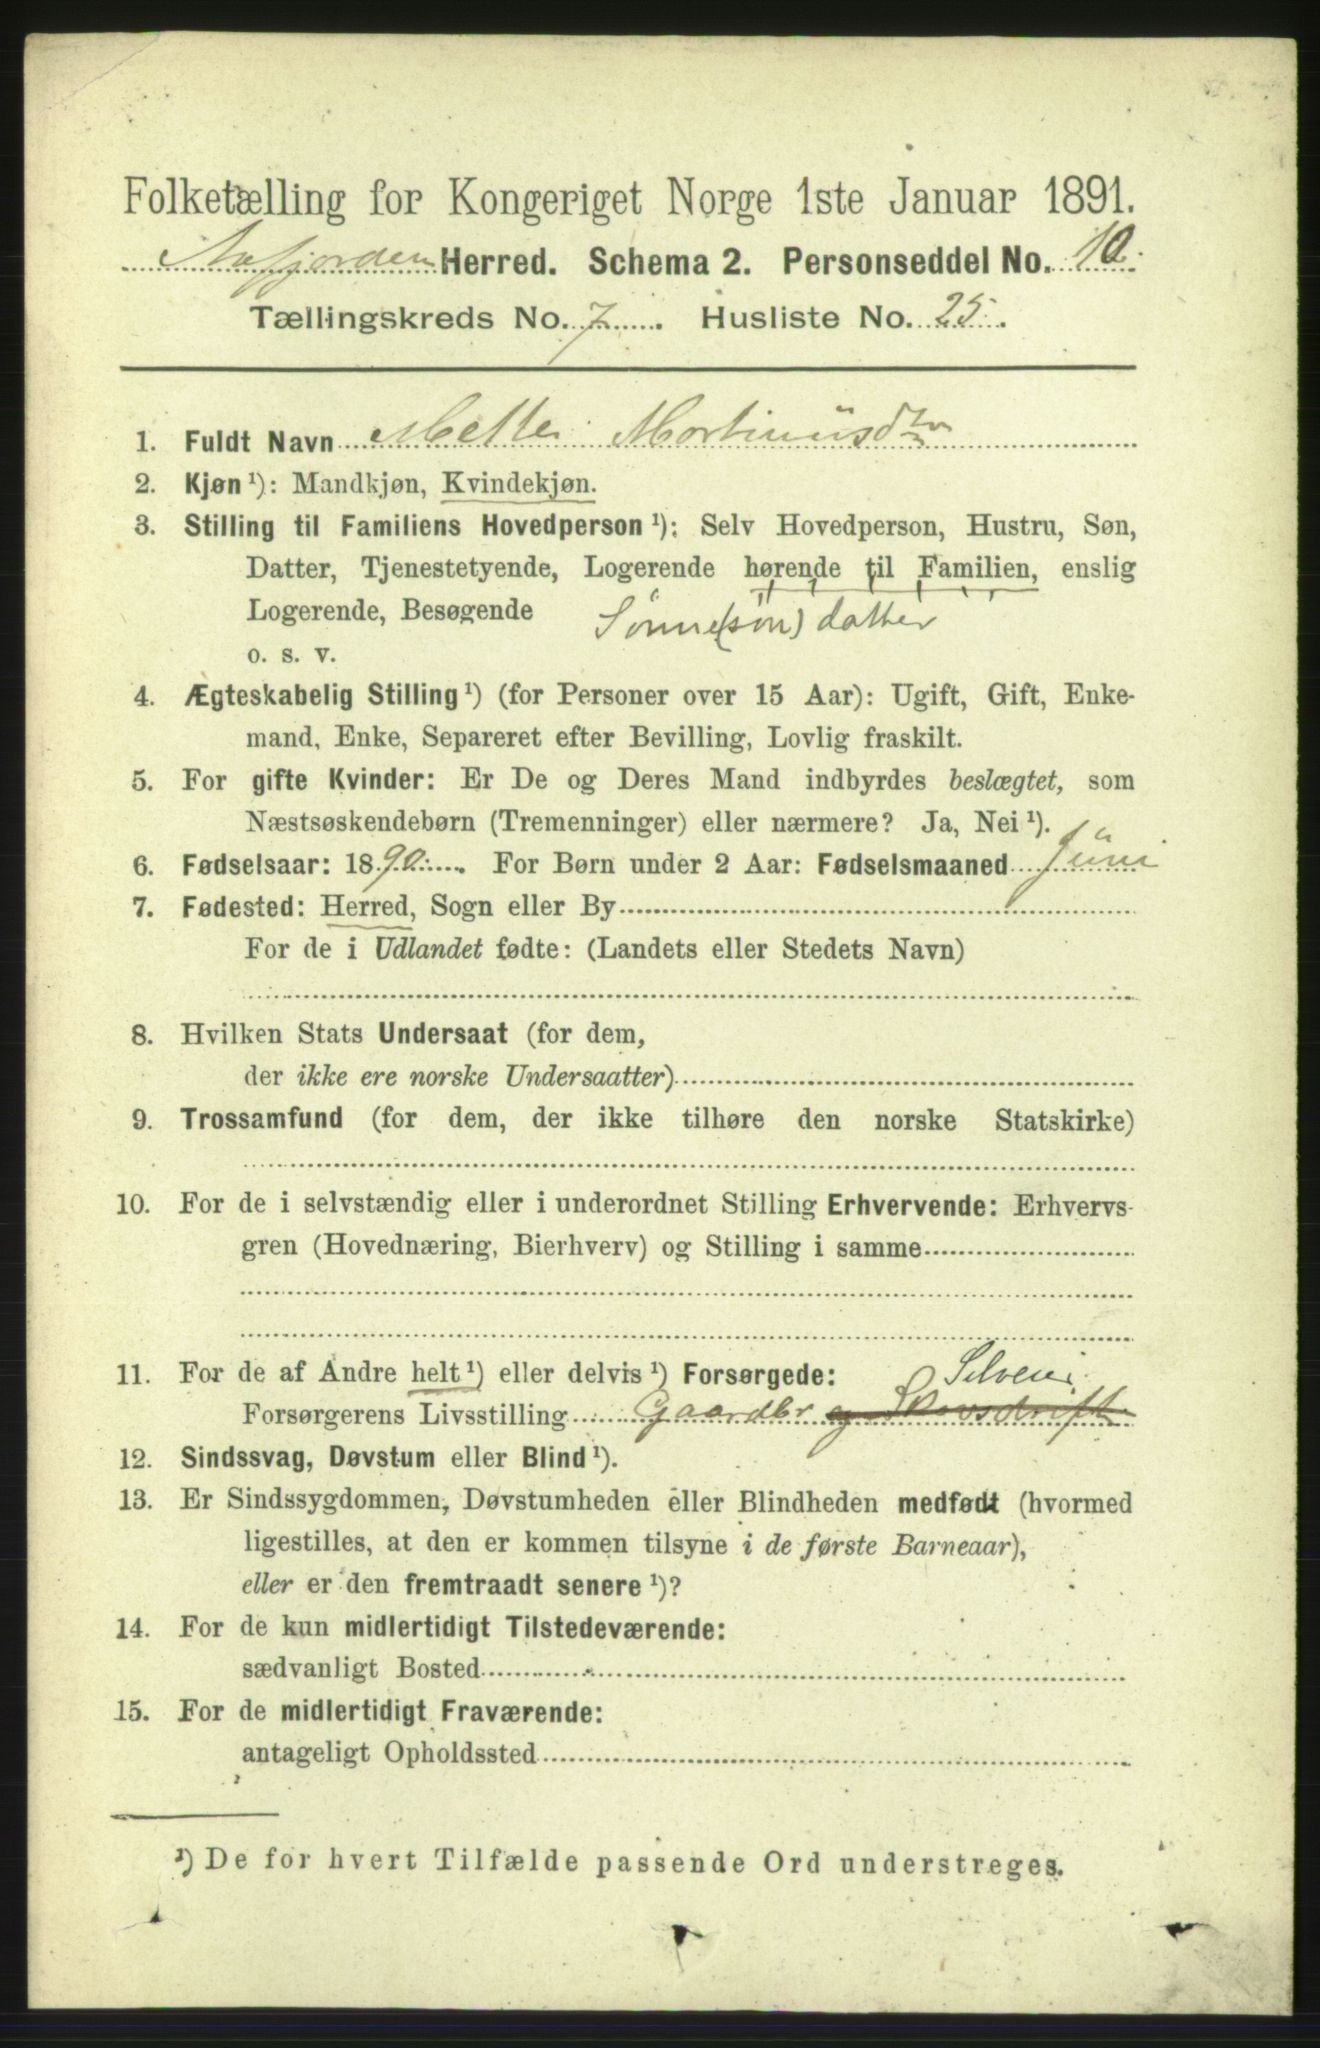 Folketælling for Kongeriget Norge 1ste Januar 1891.
Aafjorden Herred. Schema 2. Personseddel No. 10.
Tællingskreds No. 7. Husliste No. 25.
1. Fuldt Navn Mette Martinüsdtr
2. Kjøn ¹): Mandkjøn, Kvindekjøn.
3. Stilling til Familiens Hovedperson ¹): Selv Hovedperson, Hustru, Søn,
Datter, Tjenestetyende, Logerende hørende til Familien, enslig
Logerende, Besøgende Sønne(søn) datter
o. s. v.
4. Ægteskabelig Stilling ¹) (for Personer over 15 Aar): Ugift, Gift, Enke-
mand, Enke, Separeret efter Bevilling, Lovlig fraskilt.
5. For gifte Kvinder: Er De og Deres Mand indbyrdes beslægtet, som
Næstsøskendebørn (Tremenninger) eller nærmere? Ja, Nei ¹).
6. Fødselsaar: 1890. For Børn under 2 Aar: Fødselsmaaned Jüni
7. Fødested: Herred, Sogn eller By
For de i Udlandet fødte: (Landets eller Stedets Navn)
8. Hvilken Stats Undersaat (for dem,
der ikke ere norske Undersaatter)
9. Trossamfund (for dem, der ikke tilhøre den norske Statskirke)
10. For de i selvstændig eller i underordnet Stilling Erhvervende: Erhvervs-
gren (Hovednæring, Bierhverv) og Stilling i samme
11. For de af Andre helt ¹) eller delvis ¹) Forsørgede: Selveier
Forsørgerens Livsstilling Gaardbr og Skovsdrift
12. Sindssvag, Døvstum eller Blind ¹).
13. Er Sindssygdommen, Døvstumheden eller Blindheden medfødt (hvormed
ligestilles, at den er kommen tilsyne i de første Barneaar),
eller er den fremtraadt senere ¹)?
14. For de kun midlertidigt Tilstedeværende:
sædvanligt Bosted
15. For de midlertidigt Fraværende:
antageligt Opholdssted
¹) De for hvert Tilfælde passende Ord understreges.